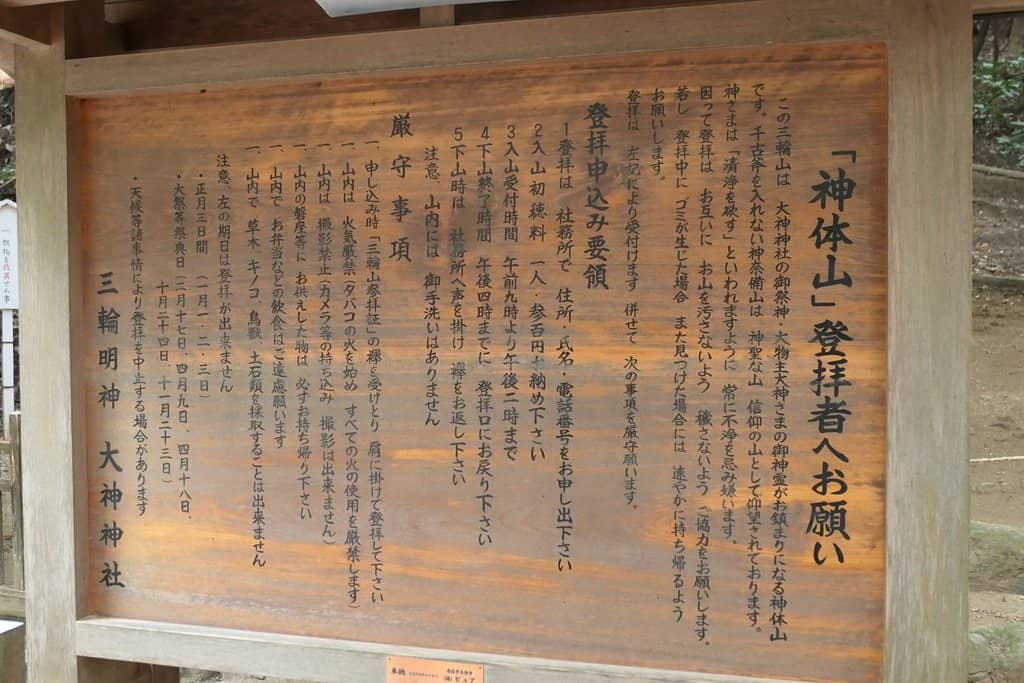 「神体山」登拝者へお願い
この三輪山は 大神神社の御祭神・大物主大神さまの御神霊がお鎮まりになる神体山
です。千古斧を入れない神奈備山は 神聖な山 信仰の山として仰望されております。
神さまは「清浄を欲す」といわれますように 常に不浄を忌み嫌います。
因って登拝は お互いに お山を汚さないよう 穢さないよう ご協力をお願いします。
若し 登拝中に ゴミが生じた場合 また見つけた場合には 速やかに持ち帰るよう
お願いします。
登拝は 左記により受付けます 併せて 次の事項を厳守願います。
登拝申込み要領
1登拝は 社務所で 住所・氏名・電話番号をお申し出下さい
2入山初穂料 一人・参百円お納め下さい
3入山受付時間 午前九時より午後二時まで
4下山終了時間 午後四時までに 登拝口にお戻り下さい
5下山時は 社務所へ声を掛け 襷をお返し下さい
注意、山内には 御手洗いはありません
厳守事項
一、申し込み時「三輪山参拝証」の襷を受けとり 肩に掛けて登拝して下さい
一、山内は 火気厳禁(タバコの火を始め すべての火の使用を厳禁します)
一、山内は 撮影禁止(カメラ等の持ち込み 撮影は出来ません)
一、山内の磐座等に お供えした物は 必ずお持ち帰り下さい
一、山内で お弁当などの飲食はご遠慮願います
一、山内で 草木、キノコ、鳥獣、土石類を採取することは出来ません
注意、左の期日は登拝が出来ません
・正月三日間 (一月一・二・三日)
・大祭等祭典日(二月十七日、四月九日、四月十八日、
十月二十四日、十一月二十三日)
・天候等諸事情により登拝を中止する場合があります
三輪明神 大神神社
奉納